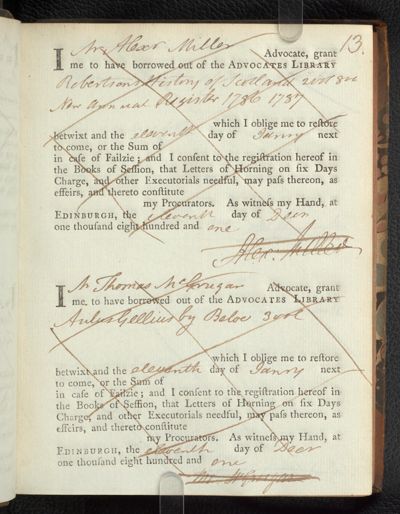 13.
I Mr Alexr Miller Advocate, grant
me to have borrowed out of the ADVOCATES LIBRARY
Robertsons History of Scotland 2 vol 8vo
New Annual Register 1786 1787
which I oblige me to reſtore
betwixt and the eleventh day of Janry next
to come, or the Sum of
in caſe of Failzie; and I conſent to the regiſtration hereof in
the Books of Seſſion, that Letters of Horning on ſix Days
Charge, and other Executorials needful, may paſs thereon, as
effeirs, and thereto conſtitute
my Procurators. As witneſs my Hand, at
EDINBURGH, the eleventh day of Decr
one thouſand eight hundred and one
Alex. Miller
I Mr Thomas McGrugar Advocate, grant
me, to have borrowed out of the ADVOCATES LIBRARY
Aulus Gellius by Beloe 3 vol
which I oblige me to reſtore
betwixt and the eleventh day of Janry next
to come, or the Sum of
in caſe of Failzie; and I conſent to the regiſtration hereof in
the Books of Seſſion, that Letters of Horning on ſix Days
Charge, and other Executorials needful, may paſs thereon, as
effeirs, and thereto conſtitute
my Procurators. As witneſs my Hand, at
EDINBURGH, the eleventh day of Decr
one thouſand eight hundred and one
McGrugar